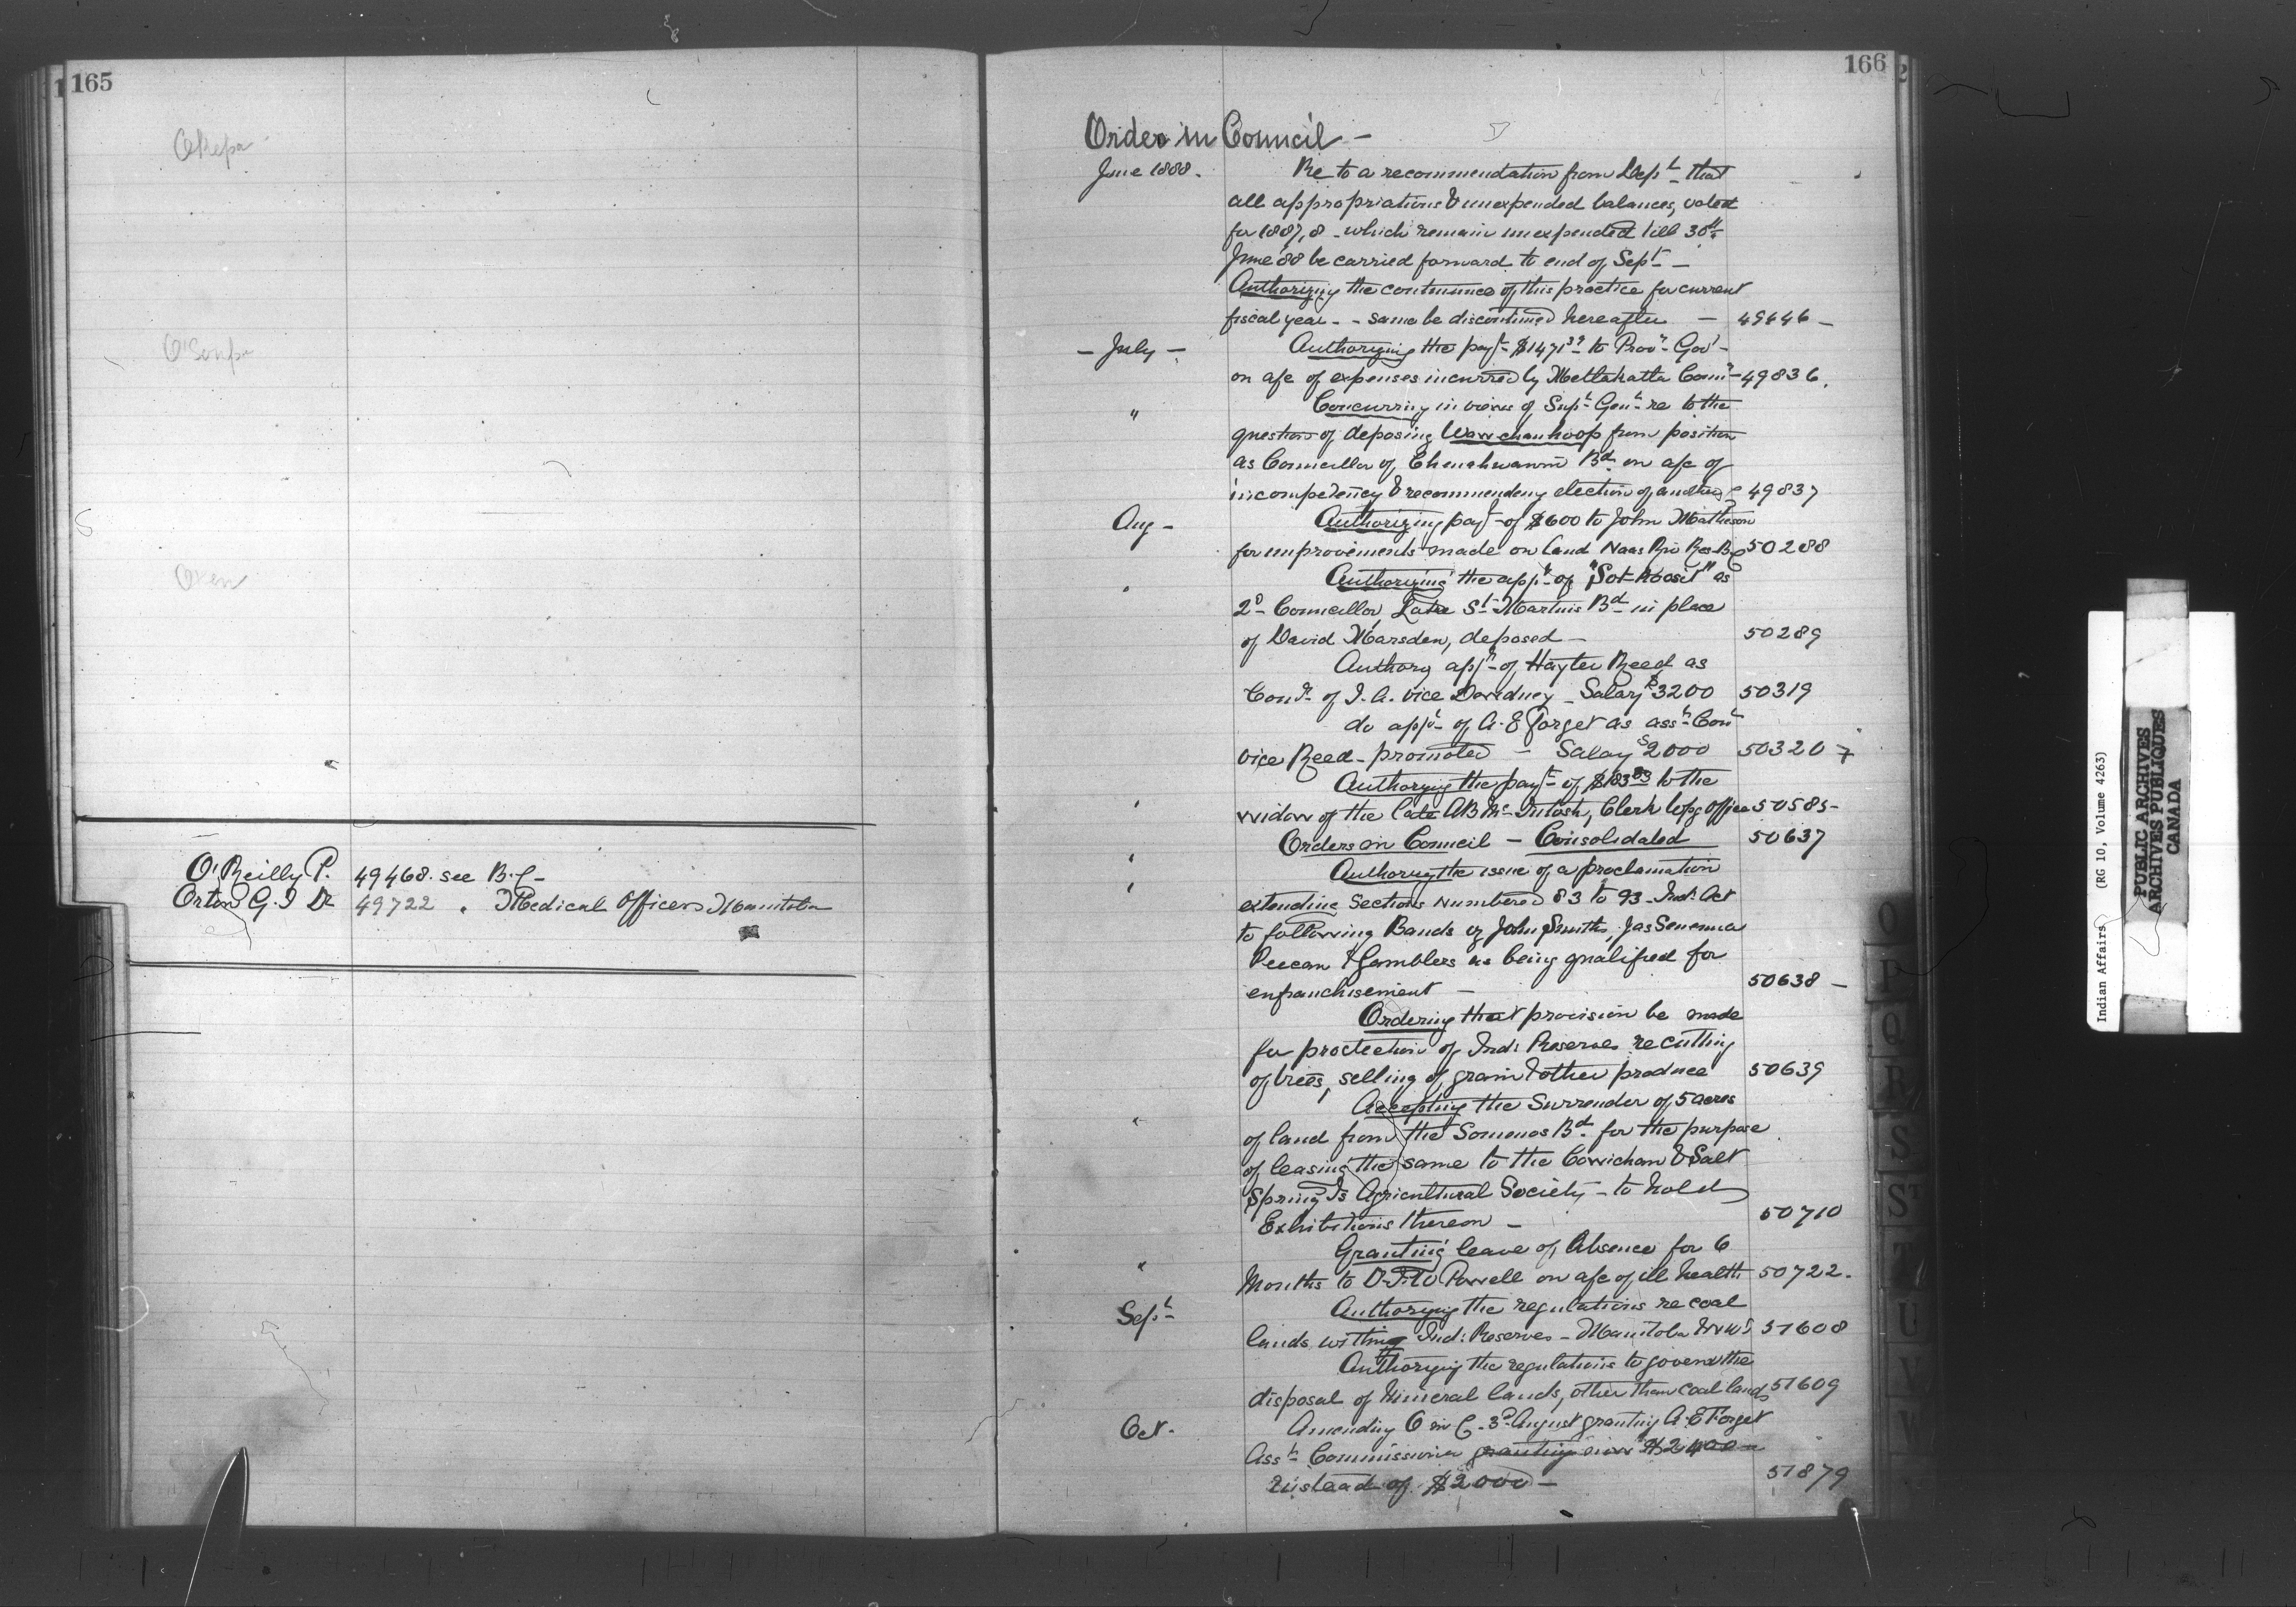 165
O'Reilly P. 49468. see B.C-
Orton G. I Dr 49722 " Medical Officers Manitoba
166
Order in Council -
June 1888. Re to a recommendation from Dept that
all appropriations & unexpended balances, voted
for 1887,8 - which remain unexpended till 30th
June '88 be carried forward to end of Sept -
Authorizing the continuance of this practice for current
fiscal year - - same be discontinued hereafter - 49446 -
- July - Authorizing the payt $1471 to Provl Govt -
on a/c of expenses incurred by Metlakatla Comn - 49836.
" Concurring in views of Supt Genl re to the
question of deposing Wawechanhoop from position
as Councillor of Bd. on a/c of
incompetency & recommending election of another - 49837
Aug - Authorizing payt of $600 to John Matheson
for improvements made on land Naas Riv Res B C 50288
" Authorizing the appt of "Sot-hoosit" as
2d Councillor, Lake St Martins Bd in place
of David Marsden, deposed - 50289
Authorg appt of Hayter Reed as
Comr of I. A. vice Dewdney - Salary $3200 50319
do appt of A. E Forget as asst Comr
vice Reed - promoted - Salary $2000 50320
Authorizing the payt of $183 83 to the
" widow of the late A B McIntosh, Clerk Wpg Office 50585-
" Orders in Council - Consolidated 50637
" Authorizing the issue of a proclamation
extending Sections Numbered 83 to 93 - Ind: Act
to following Bands vz John Smith, Jas Senenma
Peecan & Gamblers as being qualified for
enfranchisement - 50638 -
Ordering that provision be made
for protection of Ind: Reserves re cutting
of trees, selling of grain & other produce 50639
" Accepting the Surrender of 5 acres
of land from the Somenos Bd. for the purpose
of leasing the same to the Cowichan & Salt
Spring Is Agricultural Society - to hold
Exhibitions thereon - 50710
" Granting leave of Absence for 6
Months to Dr I. W Powell on a/c of ill health 50722.
Sept Authorizing the regulations re coal
lands within Ind: Reserves - Manitoba & NWT 51608
Authorizing the regulations to govern the
disposal of Mineral lands, other than coal lands 51609
Oct. Amending O in C. 3d August granting A. E Forget
Asst Commissioner granting him $2400 -
Instead of $2000 - 51879
O
P
Q
R
S
ST
T
U
V
Indian Affairs (RG 10, Volume 4263)
PUBLIC ARCHIVES
ARCHIVES PUBLIQUES
CANADA